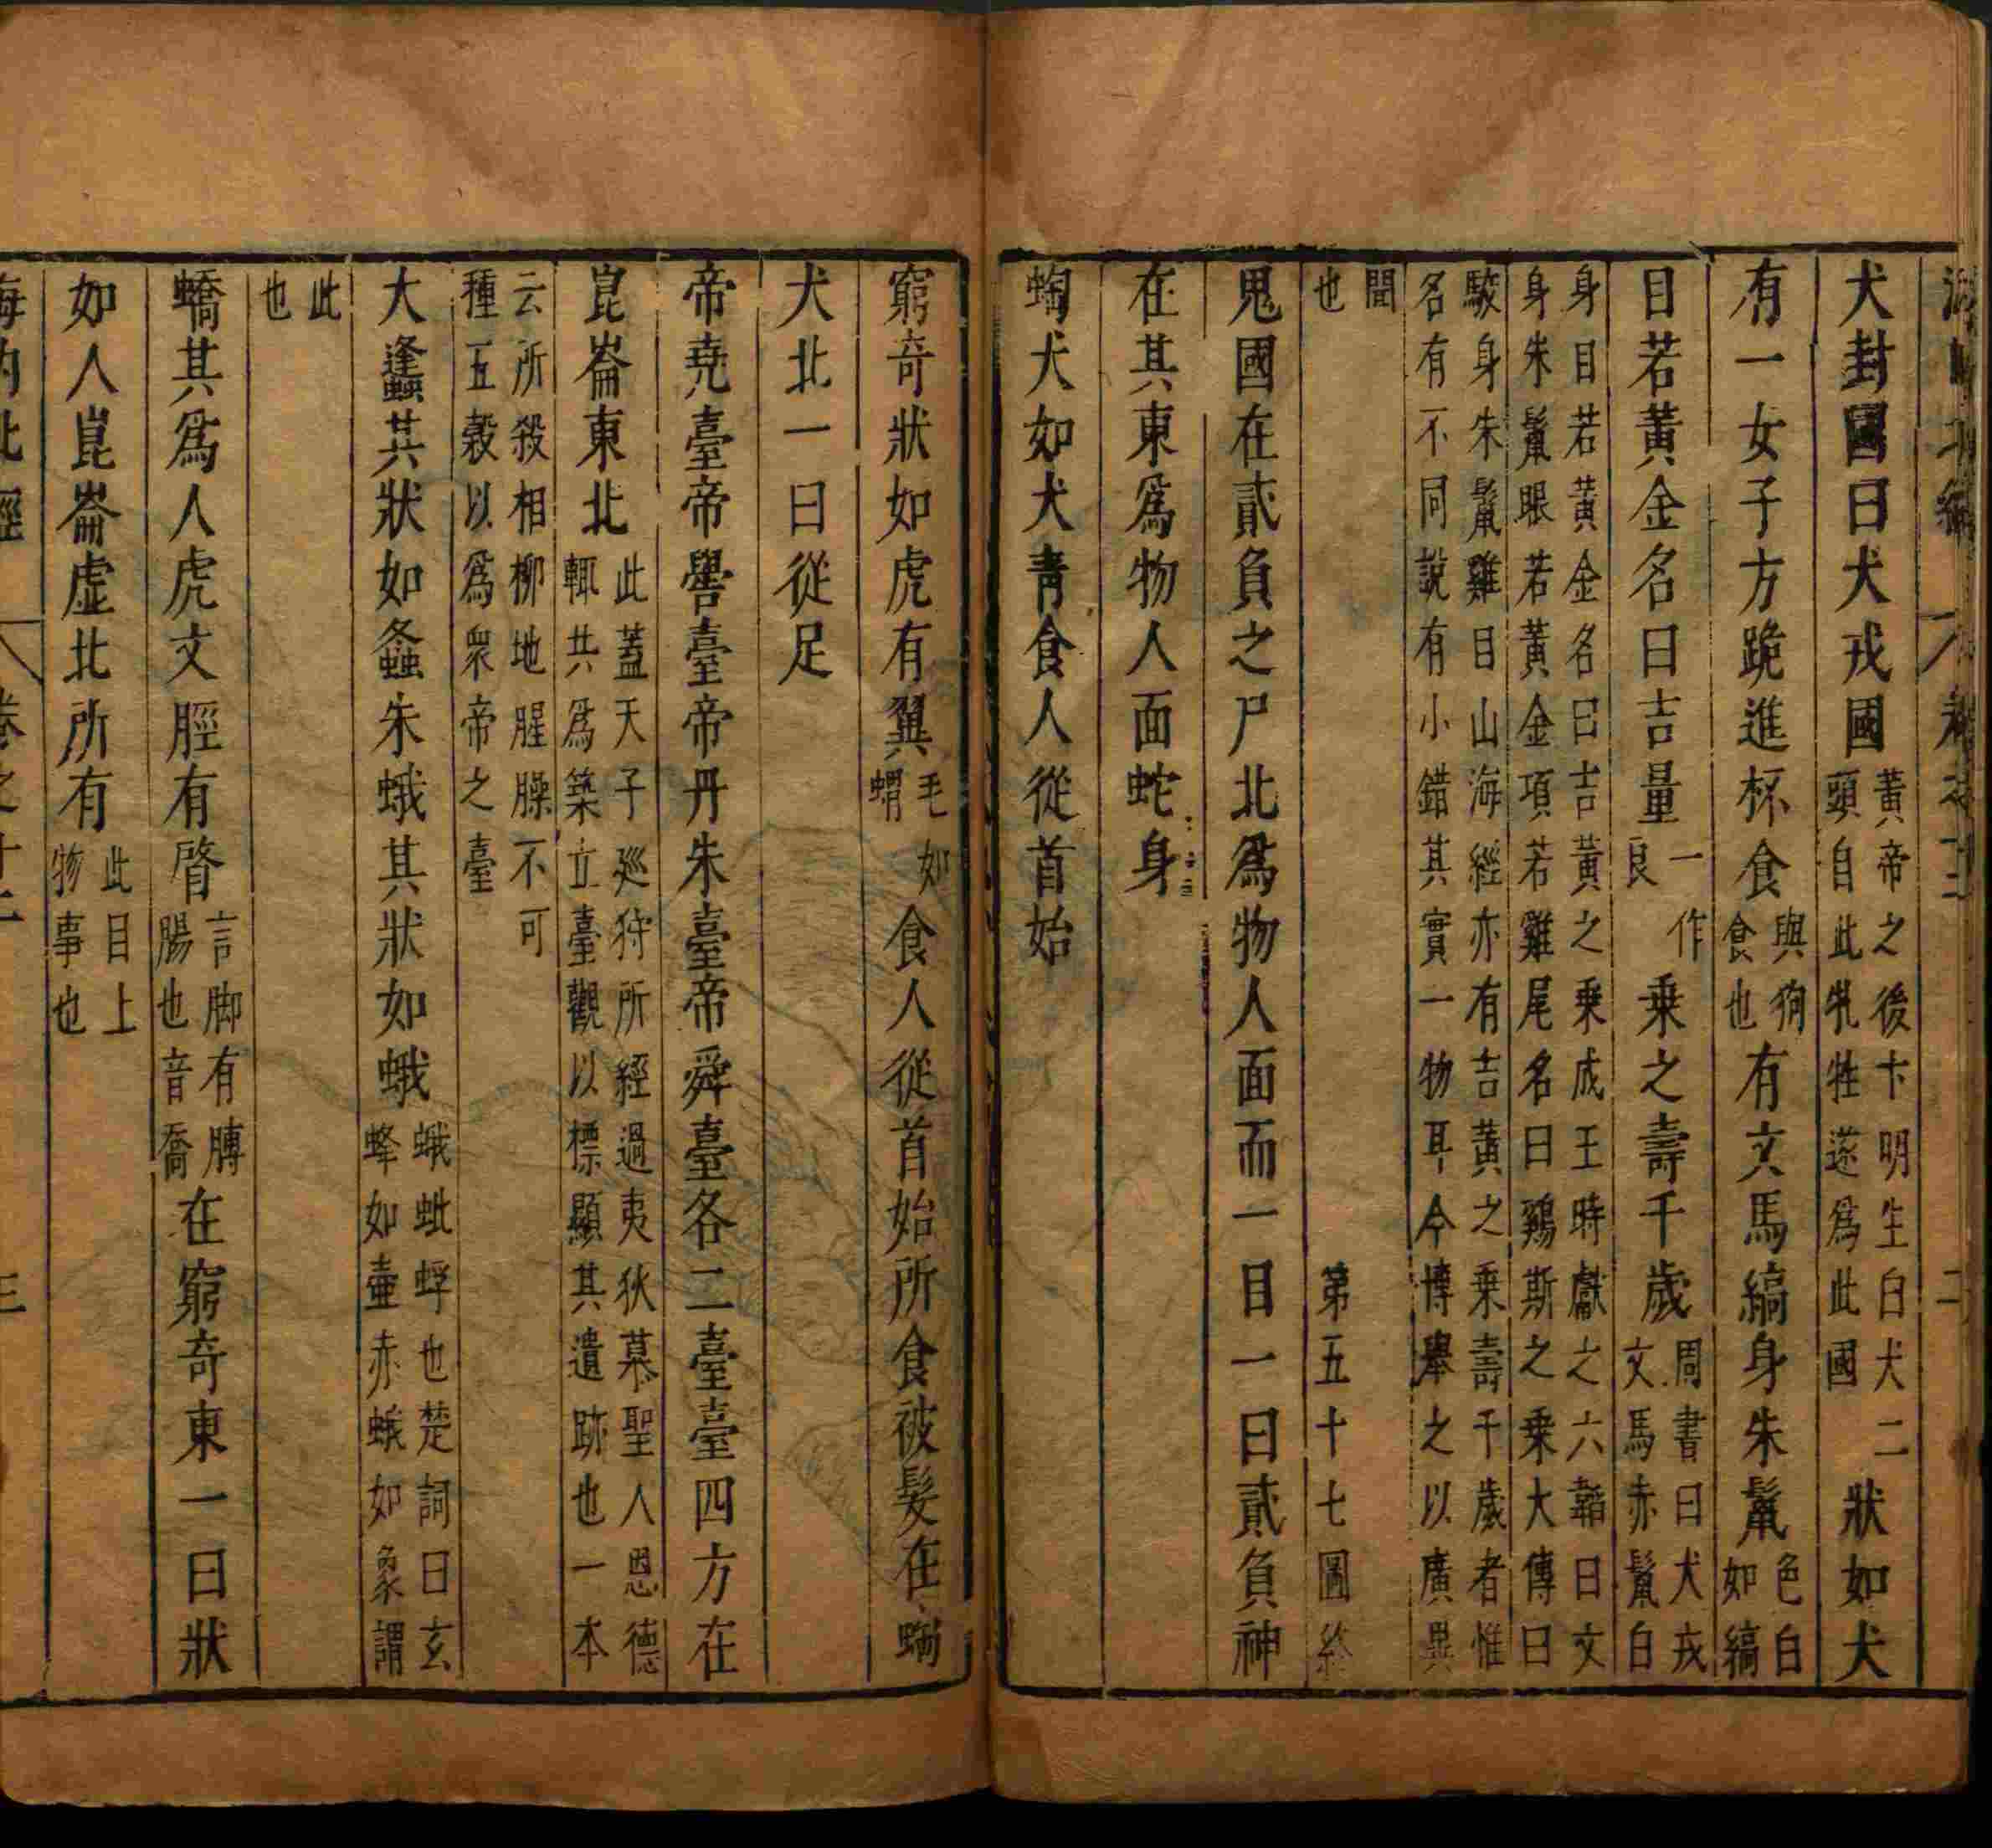 犬封國曰犬戎國黃帝之後卞明生白犬二頭自此牝牲遂爲此國狀如犬
有一女子方跪進杯食與狗食也有文馬縞身朱鬣色白如縞
目若黃金名曰吉量一作良乗之壽千歲周書曰犬戎文馬赤鬣白
身目若黃金名曰吉黃之乗成王時獻之六韜曰文
身朱鬣眼若黃金項若雞尾名曰鷄斯之乗大傳曰
駮身朱鬣雞目山海經亦有吉黃之乗壽千歲者惟
名有不同說有小錯其實一物耳今博舉之以廣異
聞也 第五十七圖終
鬼國在貳負之尸北爲物人面而一目一曰貳負神
在其東爲物人面蛇身
蜪犬如犬青食人從首始
窮奇狀如虎有翼毛如蝟食人從首始所食被髮在蜪
犬北一曰從足
帝堯臺帝嚳臺帝丹朱臺帝舜臺各二臺臺四方在
崑崙東北此蓋天子廵狩所經過夷狄慕聖人恩德輒共爲築立臺觀以標顯其遺跡也一本
云所殺相柳地腥臊不可
種五榖以爲衆帝之臺
大蠭其狀如螽朱蛾其狀如蛾蛾蚍蜉也楚詞曰玄蜂如壷赤蛾如象謂
此也
蟜其爲人虎文脛有䏿言脚有膊腸也音喬在窮奇東一曰狀
如人崑崙虛北所有此目上物事也
海內北經 卷之十二 三